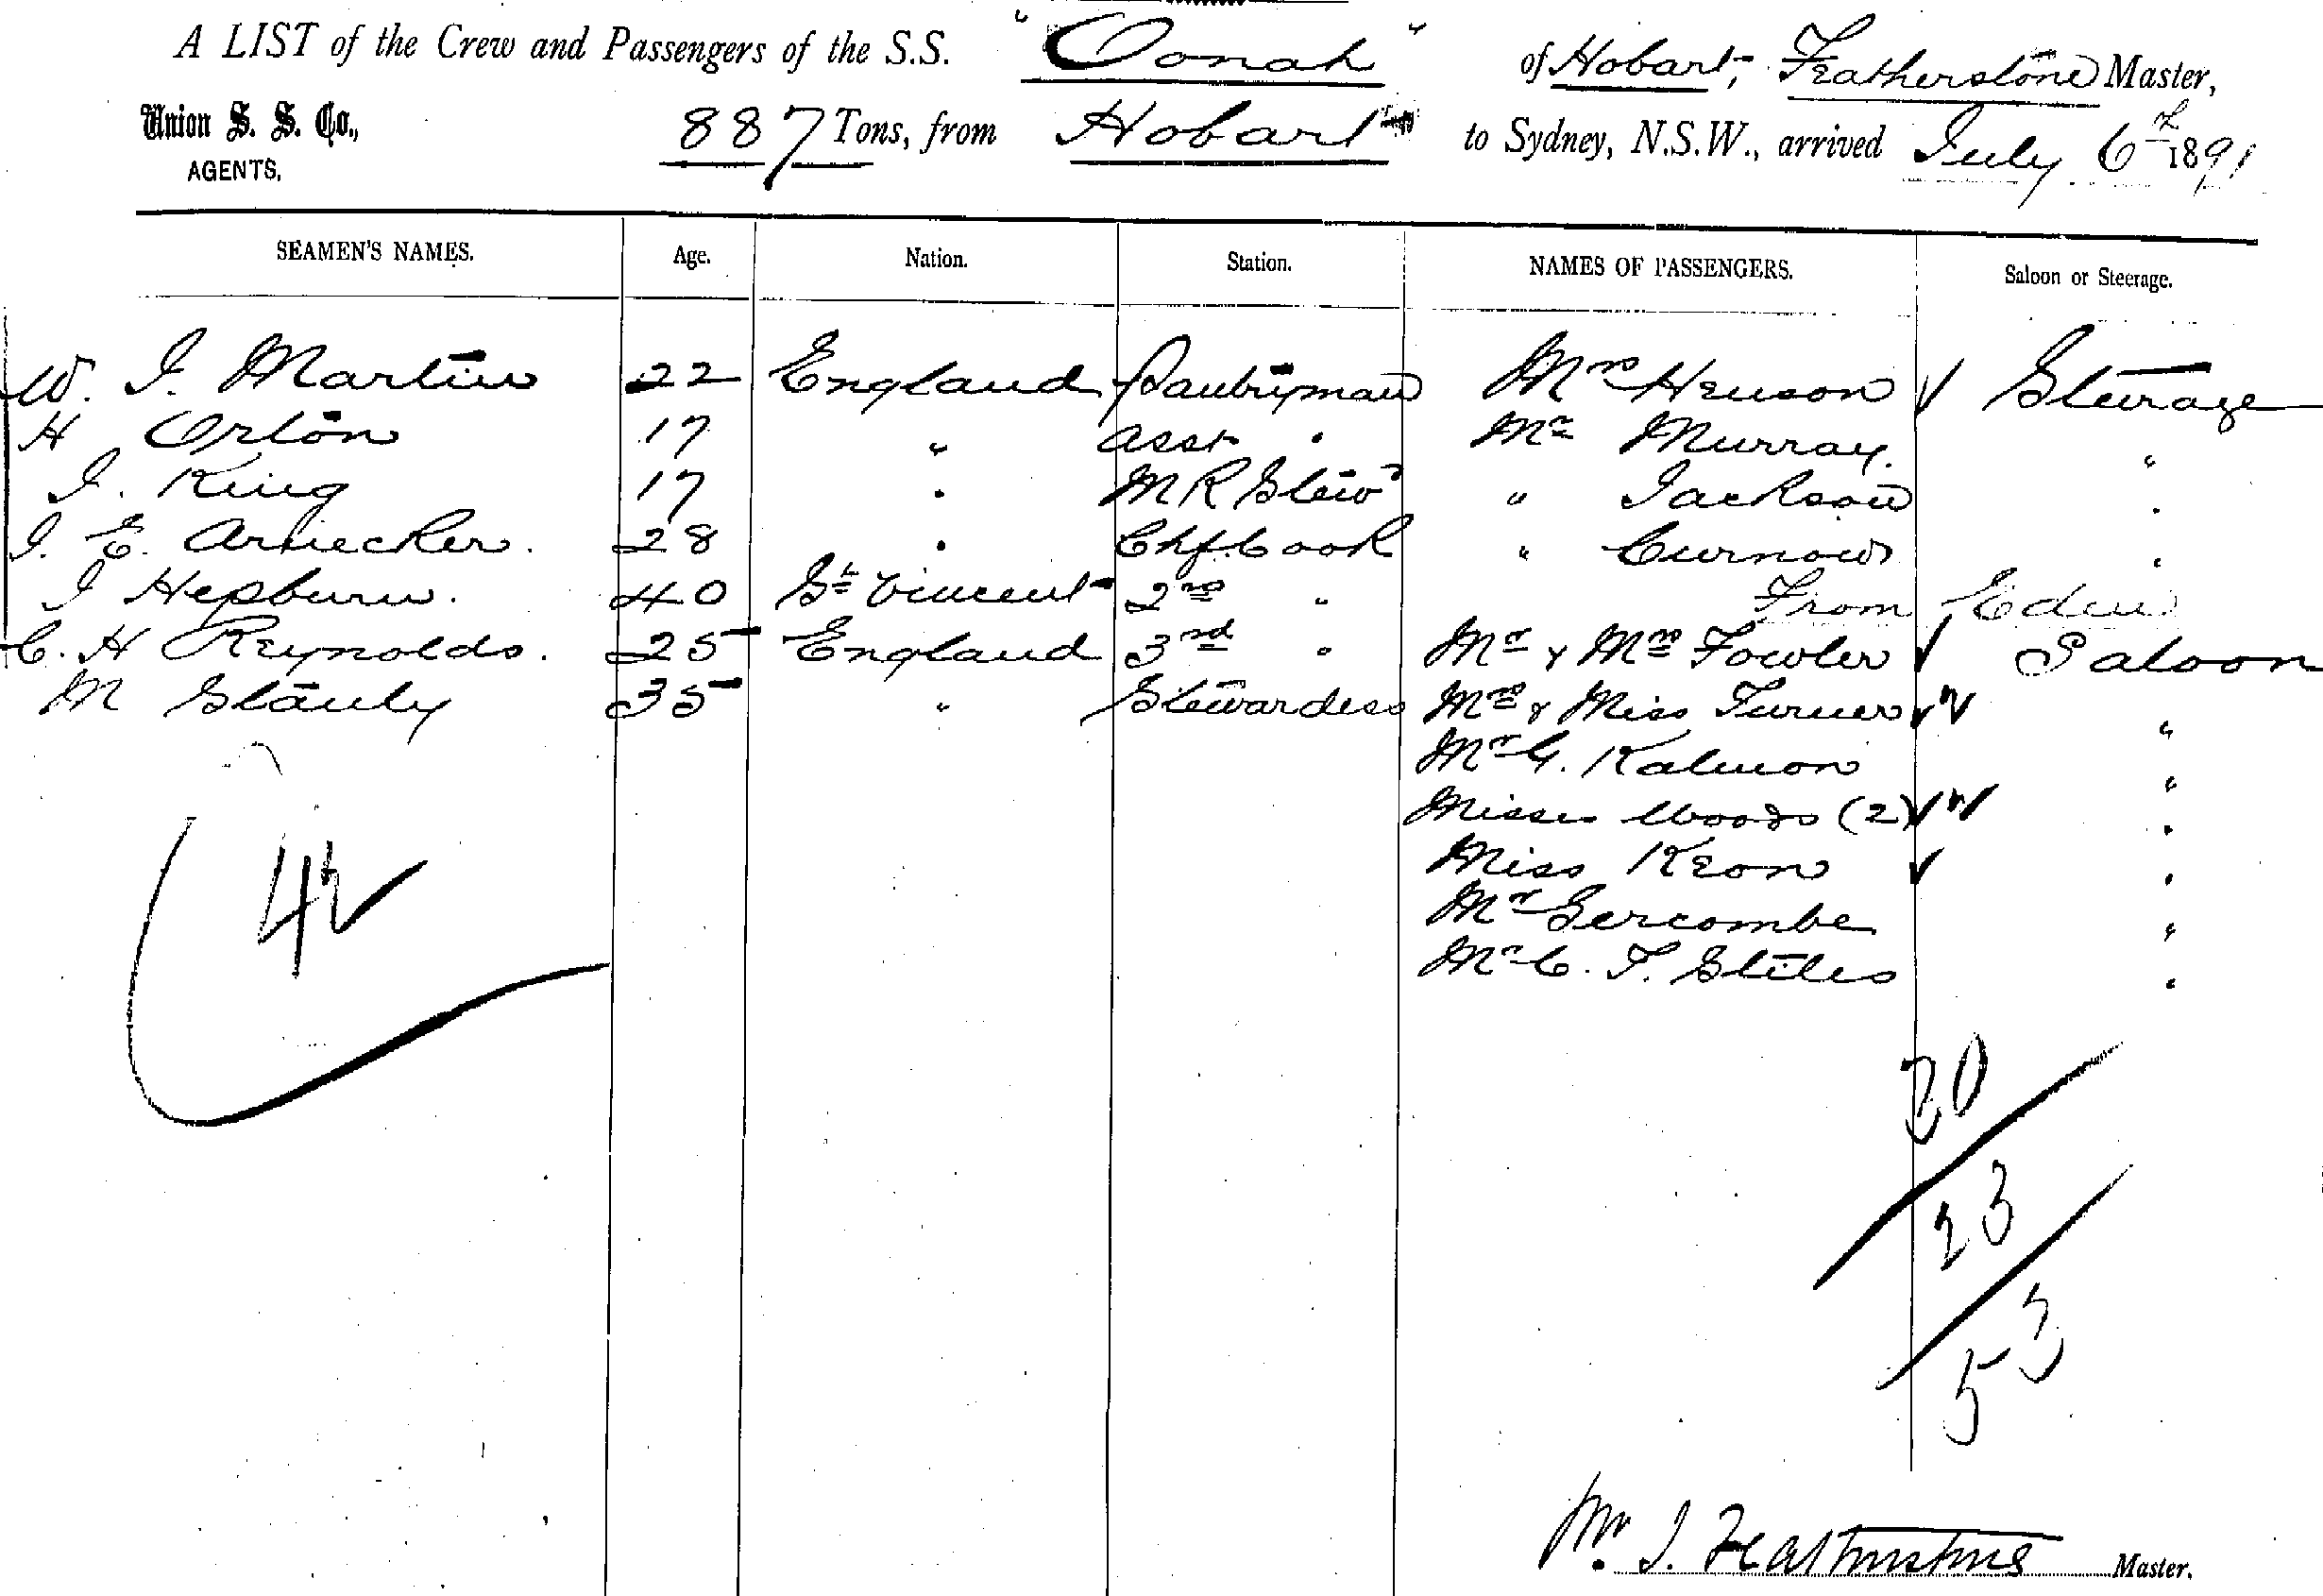 A LIST of the Crew and Passengers of the S.S. "Oonah" of Hobart, Featherstone Master,
Union S. S. Co., 887 Tons, from Hobart to Sydney, N.S.W., arrived July 6th 1891
AGENTS,
SEAMEN'S NAMES. Age. Nation. Station. NAMES OF PASSENGERS. Saloon or Steerage.
W. J. Martin 22 England Pantryman Mrs Henson Steerage
H Orton 17 " Asst " Mr Murray "
J. King 17 " M R Stewd " Jackson "
J. E. 28 " Chf. Cook " Curnow "
J Hepburn. 40 St Vincent 2nd " From Eden
C. H Reynolds. 25 England 3rd " Mr & Mrs Fowler Saloon
M Stanly 35 " Stewardess Mrs & Miss Turner "
Mr G. Kalmon "
Misses Woods (2) "
Miss Keon "
Mr Gercombe "
Mr C. F. Stiles "
42
30
23
53
J. Featherstone Master.